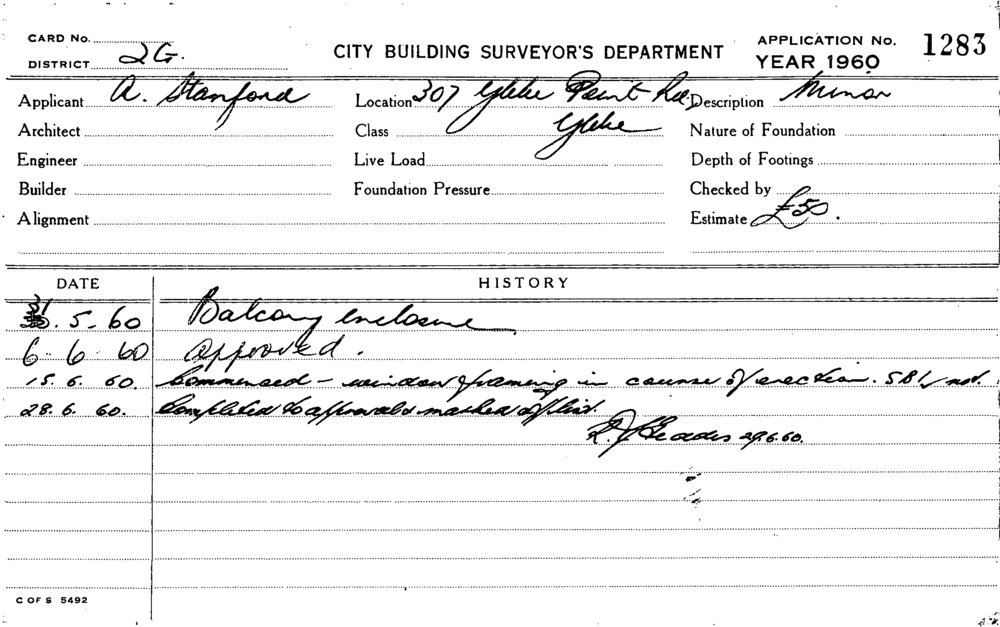 CARD No.
DISTRICT 2G.
CITY BUILDING SURVEYOR'S DEPARTMENT
APPLICATION No. 1283
YEAR 1960
Applicant A. Stanford
Location 307 Glebe Point Rd,
Description Minor
Architect
Class Glebe
Nature of Foundation
Engineer
Live Load
Depth of Footings
Builder
Foundation Pressure
Checked by
Alignment
Estimate £50.
DATE
HISTORY
31.5.60 Balcony enclosure
6.6.60 Approved.
15.6.60. Commenced - window framing in course of erection.
28.6.60. Completed to approval & marked off list.
29.6.60.
C OF S 5492